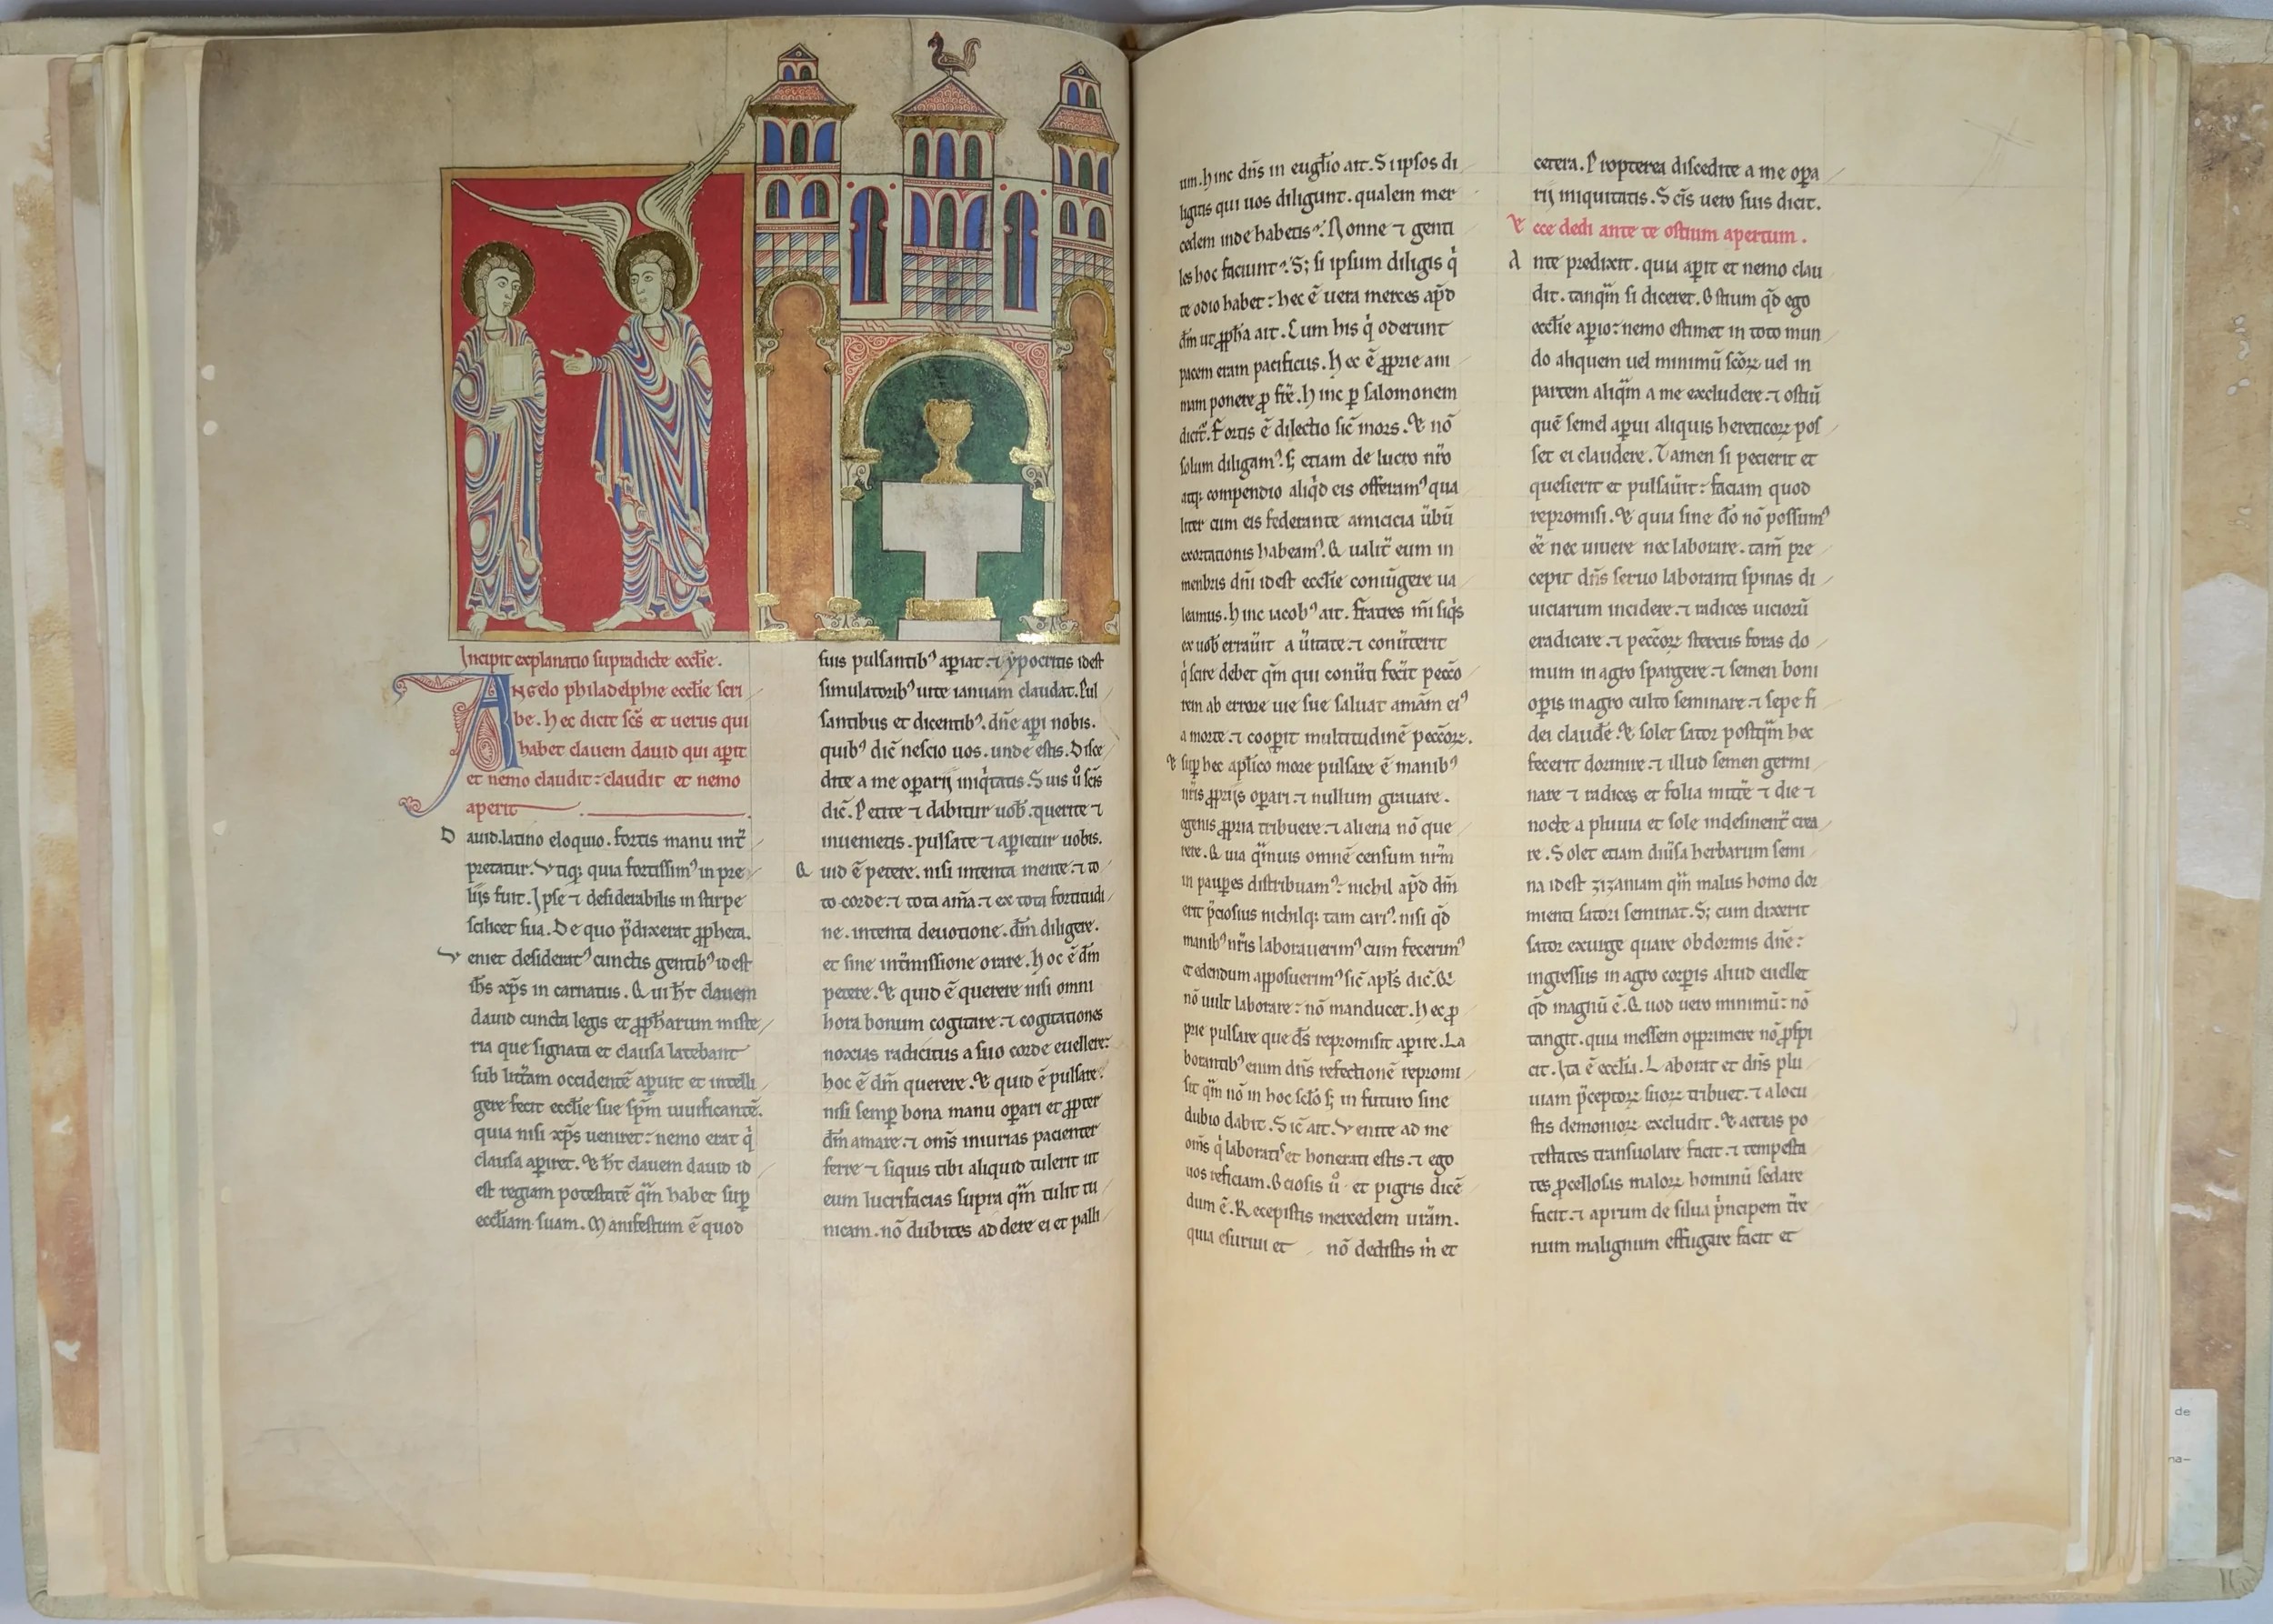 Incipit explanatio supradicte eccl̄ie.
Angelo philadelphie eccl̄ie scri
be. Hec dicit sc̄s et uerus qui
habet clauem dauid qui ap̄it
et nemo claudit: claudit et nemo
aperit
Dauid. latino eloquio. fortis manu int̄
pretatur. Vtiq; quia fortissimꝰ in pre
liis fuit. Ipse ⁊ desiderabilis in stirpe
scilicet sua. De quo p̄dixerat ꝓpheta.
Veniet desideratꝰ cunctis gentibꝰ idest
ih̄s xp̄s in carnatus. Qui h̄t clauem
dauid cuncta legis et ꝓph̄arum miste
ria que signata et clausa latebant
sub litt̄am occidentē aperuit et intelli
gere fecit eccl̄ie sue sp̄m uiuificantē.
quia nisi xp̄s ueniret: nemo erat q̇
clausa aꝑiret. Et h̄t clauem dauid id
est regiam potestatē qm̄ habet suꝑ
eccl̄iam suam. Manifestum ē quod
suis pulsantibꝰ aꝑiat. ⁊ ypocritis idest
simulatoribꝰ uite ianuam claudat. Pul
santibus et dicentibꝰ. dn̄e aperi nobis.
quibꝰ dic̄ nescio uos. unde estis. Disce
dite a me oꝑarij iniq̇tatis. Suis ů sc̄is
dic̄. Petite ⁊ dabitur uob̄. querite ⁊
inuenietis. pulsate ⁊ aꝑietur uobis.
Quid ē petere. nisi intenta mente. ⁊ to
to corde. ⁊ tota am̄a. ⁊ ex tota fortitudi
ne. intenta deuotione. dm̄ diligere.
et sine int̄missione orare. hoc ē dm̄
petere. Et quid ē querere nisi omni
hora bonum cogitare. ⁊ cogitationes
noxias radicitus a suo corde euellere:
hoc ē dm̄ querere. Et quid ē pulsare.
nisi semꝑ bona manu oꝑari et ꝓpter
dm̄ amare. ⁊ om̄s iniurias pacienter
ferre ⁊ siquis tibi aliquid tulerit ut
eum lucrifacias supra qm̄ tulit tu
nicam. nō dubites ad dere ei et palli
um. Hinc dn̄s in eugl̄io ait. Si ipsos di
ligitis qui uos diligunt. qualem mer
cedem inde habetis? Nonne ⁊ genti
les hoc faciunt? S; si ipsum diligis q̇
te odio habet: hec ē uera merces aꝑd
dm̄ ut ꝓph̄a ait. Cum his q̇ oderunt
pacem eram pacificus. Hec ē ꝓprie ani
mam ponere ꝓ fr̄e. Hinc ꝑ salomonem
dicit̄. Fortis ē dilectio sic̄ mors. Et nō
solum diligamꝰ. s; etiam de lucro nr̄o
atq; compendio aliq̇d eis offeramꝰ qua
liter cum eis federante amicicia
exortationis habeamꝰ. Qualit̄ eum in
menbris dn̄i idest eccl̄ie coniūgere ua
leamus. Hinc iacobꝰ ait. Fratres m̄i siq̇s
ex uob̄ errau̇it a u̇itate. ⁊ conu̇terit
q̇ scire debet qm̄ qui conu̇ti fec̄it pecc̄o
rem ab errore uie sue saluat am̄am eiꝰ
a morte. ⁊ cooꝑit multitudinē pecc̄oꝝ.
Et suꝑ hec apl̄ico more pulsare ē manibꝰ
nr̄is ꝓprijs oꝑari. ⁊ nullum grauare.
egenis ꝓpria tribuere. ⁊ aliena nō que
rere. Quia qm̄uis omnē censum nr̄m
in pauꝑes distribuamꝰ: nichil aꝑd dm̄
erit p̄ciosius nichilq; tam carꝰ. nisi qd̄
manibꝰ nr̄is laborauerimꝰ cum fecerimꝰ
et edendum apposuerimꝰ sic̄ apl̄s dic̄. Qi
nō uult laborare: nō manducet. Hec ꝓ
prie pulsare que ds̄ repromisit aꝑire. La
borantibꝰ enim dn̄s refectionē repromi
sit qm̄ nō in hoc sc̄lo s; in futuro sine
dubio dabit. Sic̄ ait. Venite ad me
om̄s q̇ laboratis et honerati estis. ⁊ ego
uos reficiam. Ociosis ů et pigris dicē
dum ē. Recepistis mercedem ur̄am.
quia esuriui et nō dedistis m̄ et
cetera. Propterea discedite a me oꝑa
rij iniquitatis. Sc̄is uero suis dicit.
Ecce dedi ante te ostium apertum.
Ante predixit. quia aꝑit et nemo clau
dit. tanqm̄ si diceret. Ostium qd̄ ego
eccl̄ie aꝑio: nemo estimet in toto mun
do aliquem uel minimū sc̄oꝝ uel in
partem aliqm̄ a me excludere. ⁊ ostiū
quē semel aperui aliquis hereticoꝝ pos
set ei claudere. Tamen si pecierit et
quesierit et pulsau̇it: faciam quod
repromisi. Et quia sine dō nō possumꝰ
eē nec uiuere nec laborare. tam̄ pre
cepit dn̄s seruo laboranti spinas di
uiciarum incidere. ⁊ radices uiciorū
eradicare. ⁊ pecc̄oꝝ stercus foras do
mum in agro spargere. ⁊ semen boni
oꝑis in agro culto seminare. ⁊ sepe fi
dei claudē. Et solet sator postqm̄ hec
fecerit dormire. ⁊ illud semen germi
nare ⁊ radices et folia mitt̄e ⁊ die ⁊
nocte a pluuia et sole indesinent̄ crea
re. Solet etiam diu̇sa herbarum semi
na idest zizaniam qm̄ malus homo dor
mienti satori seminat. S; cum dixerit
sator exurge quare obdormis dn̄e:
ingressus in agro corꝑis aliud euellet
qd̄ magnū ē. Quod uero minimū: nō
tangit. quia messem opprimere nō ꝓspi
cit. Ita ē eccl̄ia. Laborat et dn̄s plu
uiam p̄ceptoꝝ suoꝝ tribuet. ⁊ a locu
stis demonioꝝ excludit. Et aereas po
testates transuolare facit. ⁊ tempesta
tes ꝓcellosas maloꝝ hominū sedare
facit. ⁊ aprum de silua p̄ncipem
num malignum effugare facit et
de
na-